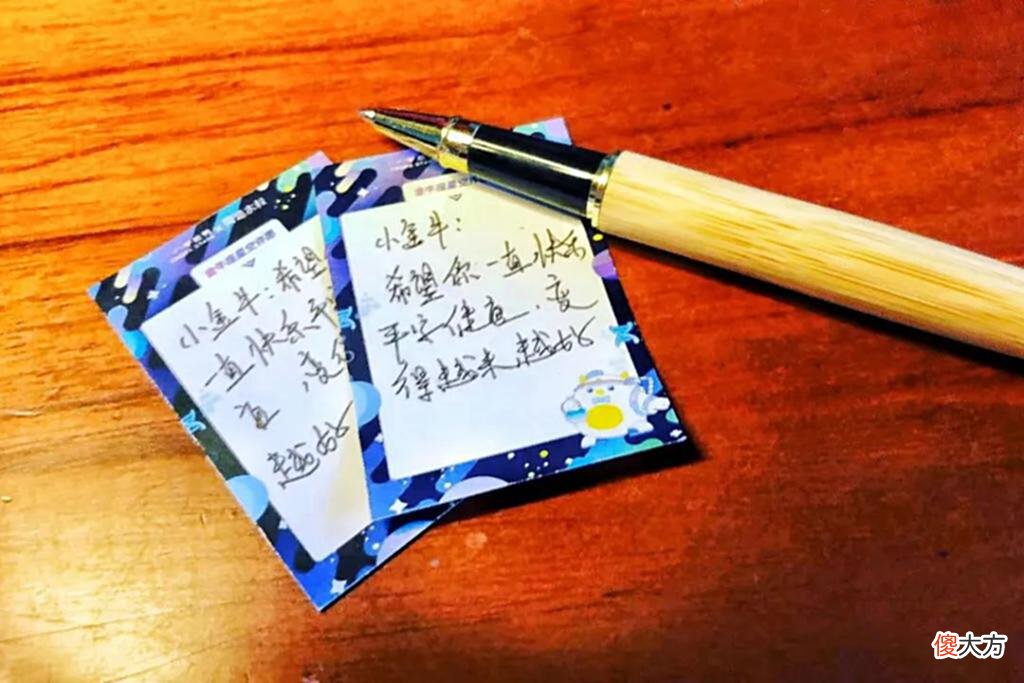 小金牛：希望
一直快乐
越好
小金牛：
希望你一直快乐
平安健康，变
得越来越好
傻大方